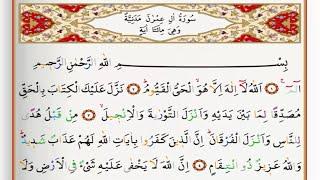 سُورَةُ اٰلِ عِمْرٰنَ مَدَنِيَّةٌ
وَهِيَ مِائَتَا اٰيَةٍ
بِسْمِ اللّٰهِ الرَّحْمٰنِ الرَّحِيمِ
الٓمٓ ۞ اَللّٰهُ لَٓا اِلٰهَ اِلَّا هُوَ الْحَيُّ الْقَيُّومُ ۞ نَزَّلَ عَلَيْكَ الْكِتَابَ بِالْحَقِّ
مُصَدِّقًا لِمَا بَيْنَ يَدَيْهِ وَاَنْزَلَ التَّوْرٰيةَ وَالْاِنْجٖيلَ ۞ مِنْ قَبْلُ هُدًى
لِلنَّاسِ وَاَنْزَلَ الْفُرْقَانَ اِنَّ الَّذٖينَ كَفَرُوا بِاٰيَاتِ اللّٰهِ لَهُمْ عَذَابٌ شَدٖيدٌ
وَاللّٰهُ عَزٖيزٌ ذُو انْتِقَامٍ ۞ اِنَّ اللّٰهَ لَا يَخْفٰى عَلَيْهِ شَيْءٌ فِي الْاَرْضِ وَلَا